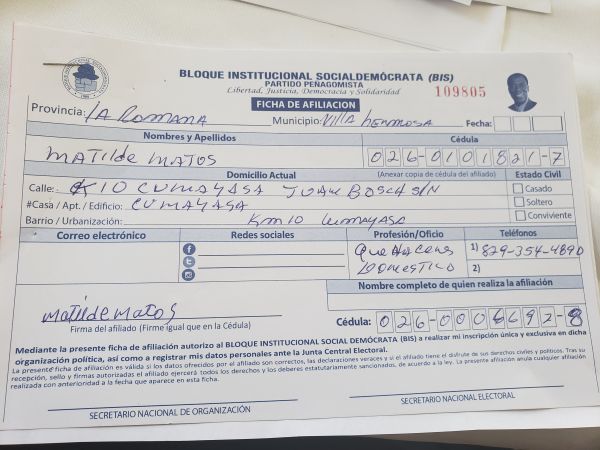 BLOQUE INSTITUCIONAL SOCIALDEMÓCRATA (BIS)
PARTIDO PENAGOMISTA
Libertad, Justicia, Democracia y Solidaridad
109805
FICHA DE AFILIACION
Provincia: LA ROMANA Municipio: Villa hermosA Fecha:
Nombres y Apellidos Cédula
MATilde MATOS 026-0101821-7
Domicilio Actual (Anexar copia de cédula del afiliado) Estado Civil
Calle: K10 CUMAYASA JUAN BOSCH S/N Casado
#Casa / Apt. / Edificio: CUMAYASA Soltero
Barrio / Urbanización: Km 10 cumayasa Conviviente
Correo electrónico Redes sociales Profesión/Oficio Teléfonos
QueHaceres 1) 829-354-4890
DOMESTICO 2)
Nombre completo de quien realiza la afiliación
MATildeMATOS
Firma del afiliado (Firme igual que en la Cédula) Cédula: 026-0006692-8
Mediante la presente ficha de afiliación autorizo al BLOQUE INSTITUCIONAL SOCIAL DEMÓCRATA (BIS) a realizar mi inscripción única y exclusiva en dicha
organización política, así como a registrar mis datos personales ante la Junta Central Electoral.
La presente ficha de afiliación es válida si los datos ofrecidos por el afiliado son correctos, las declaraciones veraces y si el afiliado tiene el disfrute de sus derechos civiles y políticos. Tras su
recepción, sello y firmas autorizadas el afiliado ejercerá todos los derechos y los deberes estatutariamente sancionados, de acuerdo a la ley. La presente afiliación anula cualquier afiliación
realizada con anterioridad a la fecha que aparece en esta ficha.
SECRETARIO NACIONAL DE ORGANIZACIÓN SECRETARIO NACIONAL ELECTORAL